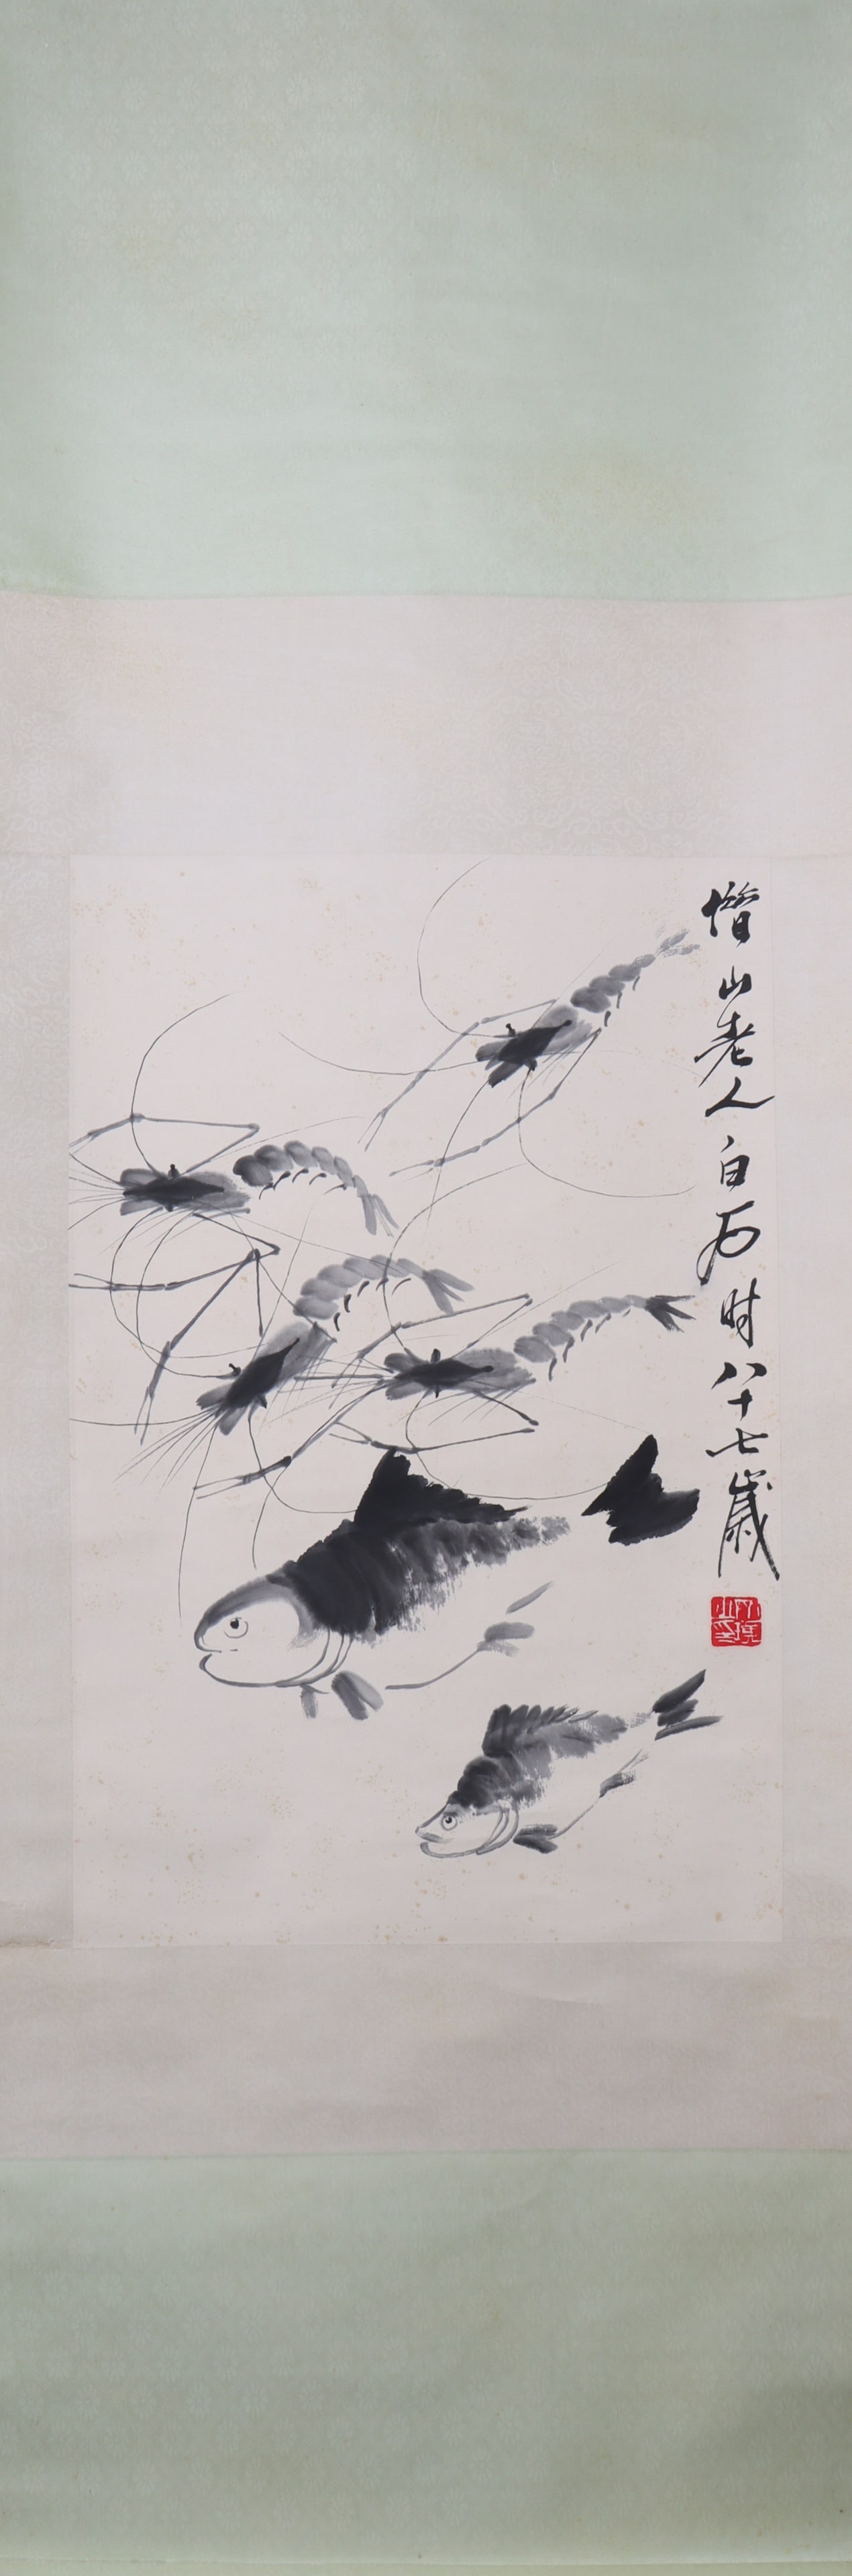 借山老人白石时八十七歲